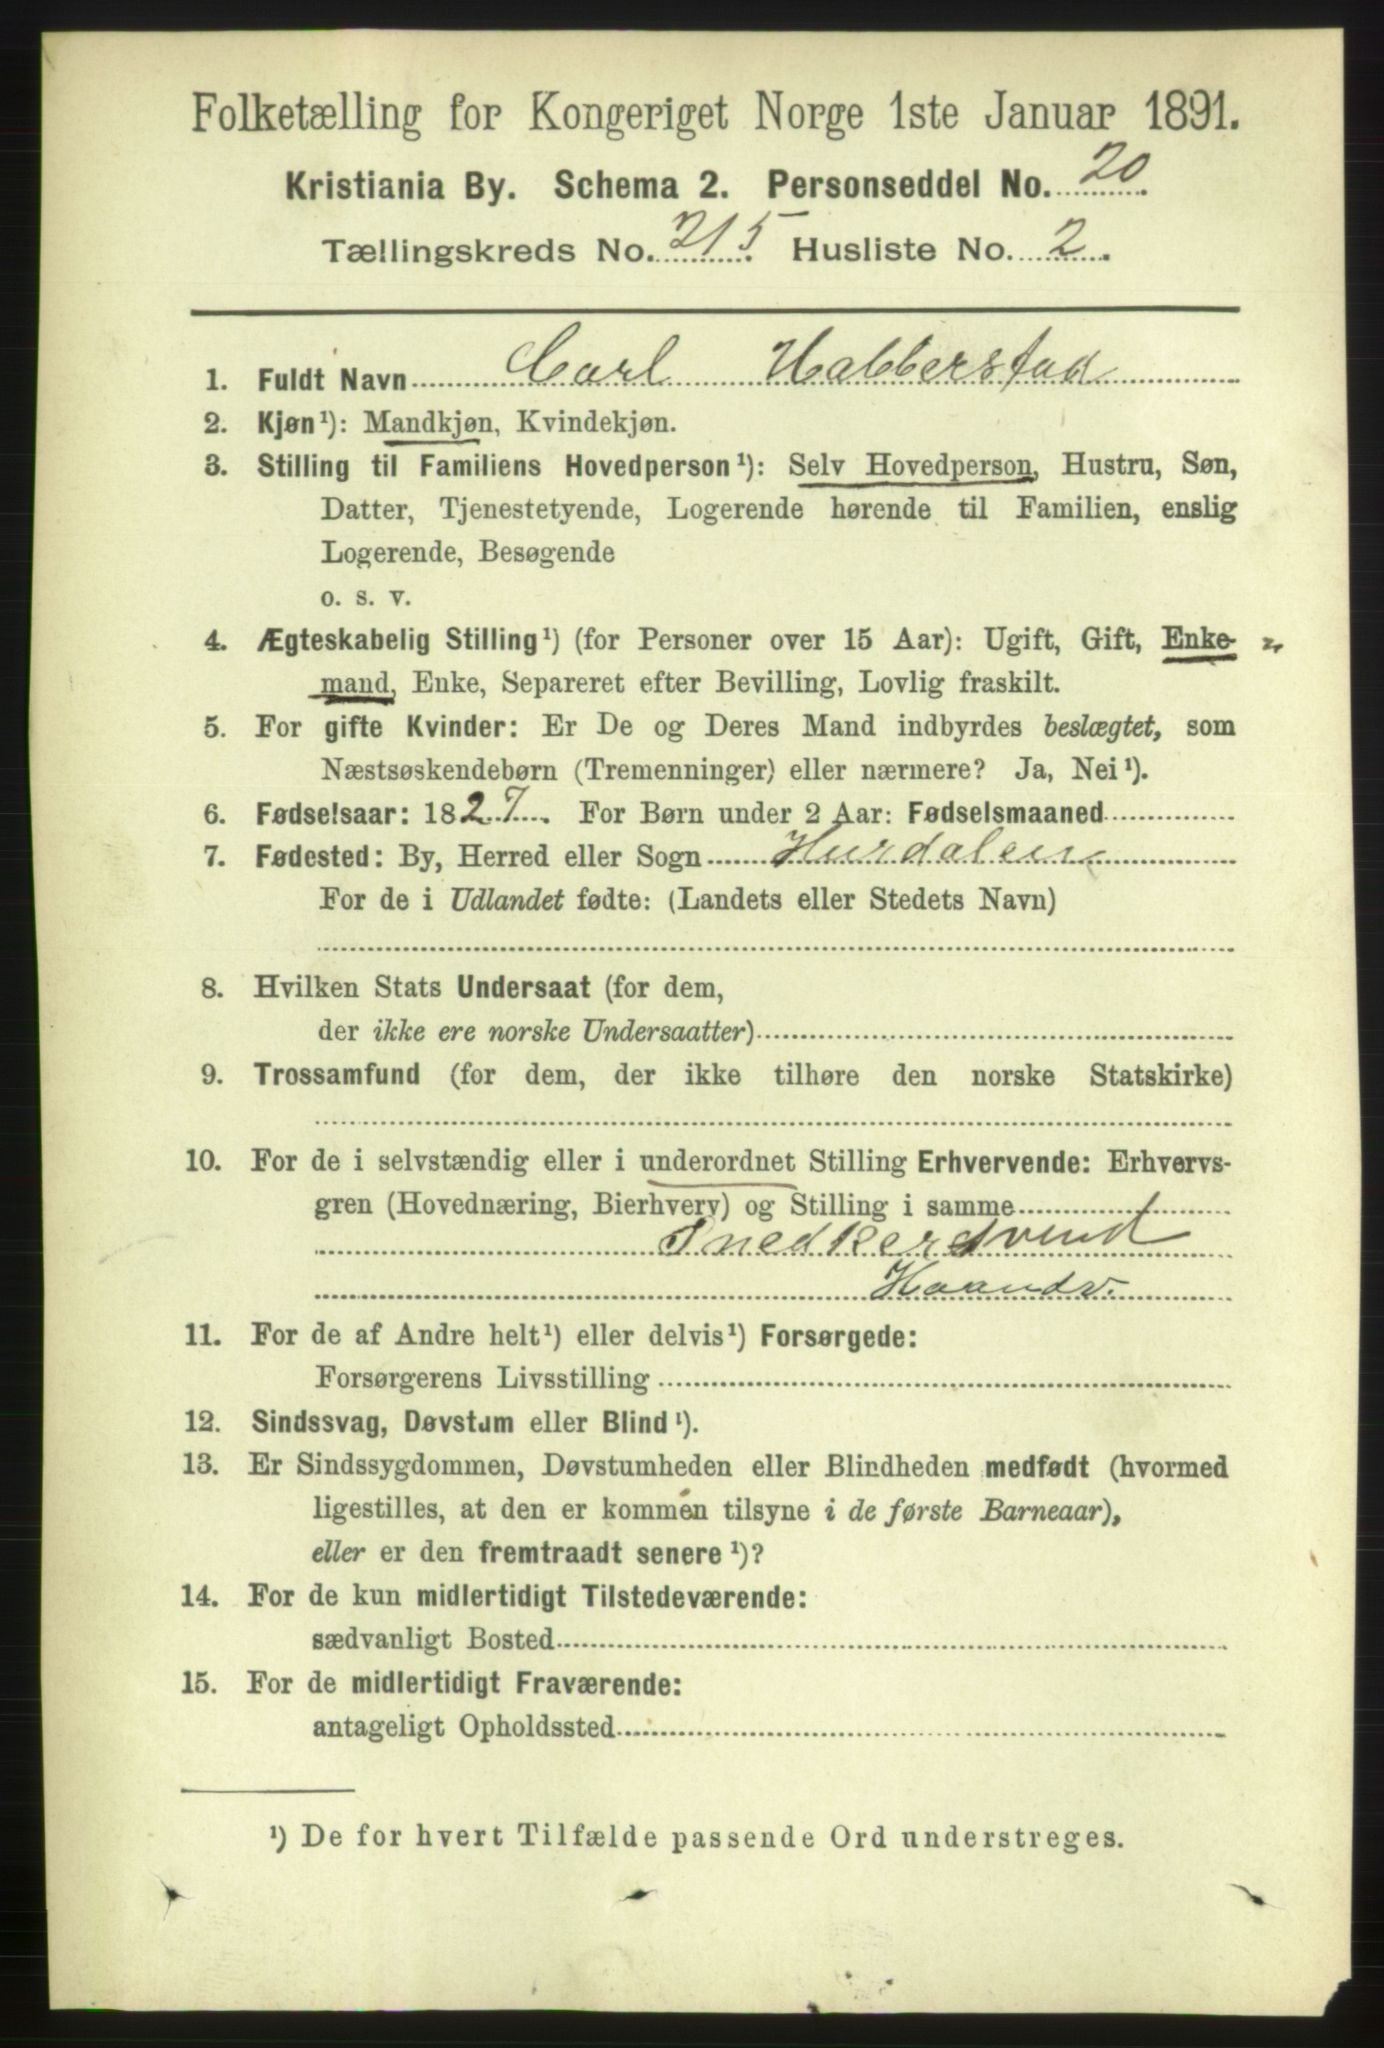 Folketælling for Kongeriget Norge 1ste Januar 1891.
Kristiania By. Schema 2. Personseddel No. 20
Tællingskreds No. 215. Husliste No. 2.
1. Fuldt Navn Carl Habberstad
2. Kjøn¹): Mandkjøn, Kvindekjøn.
3. Stilling til Familiens Hovedperson¹): Selv Hovedperson, Hustru, Søn,
Datter, Tjenestetyende, Logerende hørende til Familien, enslig
Logerende, Besøgende
o. s. v.
4. Ægteskabelig Stilling¹) (for Personer over 15 Aar): Ugift, Gift, Enke-
mand, Enke, Separeret efter Bevilling, Lovlig fraskilt.
5. For gifte Kvinder: Er De og Deres Mand indbyrdes beslægtet, som
Næstsøskendebørn (Tremenninger) eller nærmere? Ja, Nei¹).
6. Fødselsaar: 1827. For Børn under 2 Aar: Fødselsmaaned
7. Fødested: By, Herred eller Sogn Hurdalen
For de i Udlandet fødte: (Landets eller Stedets Navn)
8. Hvilken Stats Undersaat (for dem,
der ikke ere norske Undersaatter)
9. Trossamfund (for dem, der ikke tilhøre den norske Statskirke)
10. For de i selvstændig eller i underordnet Stilling Erhvervende: Erhvervs-
gren (Hovednæring, Bierhverv) og Stilling i samme
Snedkersvend
Haandv.
11. For de af Andre helt¹) eller delvis¹) Forsørgede:
Forsørgerens Livsstilling
12. Sindssvag, Døvstum eller Blind¹).
13. Er Sindssygdommen, Døvstumheden eller Blindheden medfødt (hvormed
ligestilles, at den er kommen tilsyne i de første Barneaar),
eller er den fremtraadt senere¹)?
14. For de kun midlertidigt Tilstedeværende:
sædvanligt Bosted
15. For de midlertidigt Fraværende:
antageligt Opholdssted
¹) De for hvert Tilfælde passende Ord understreges.